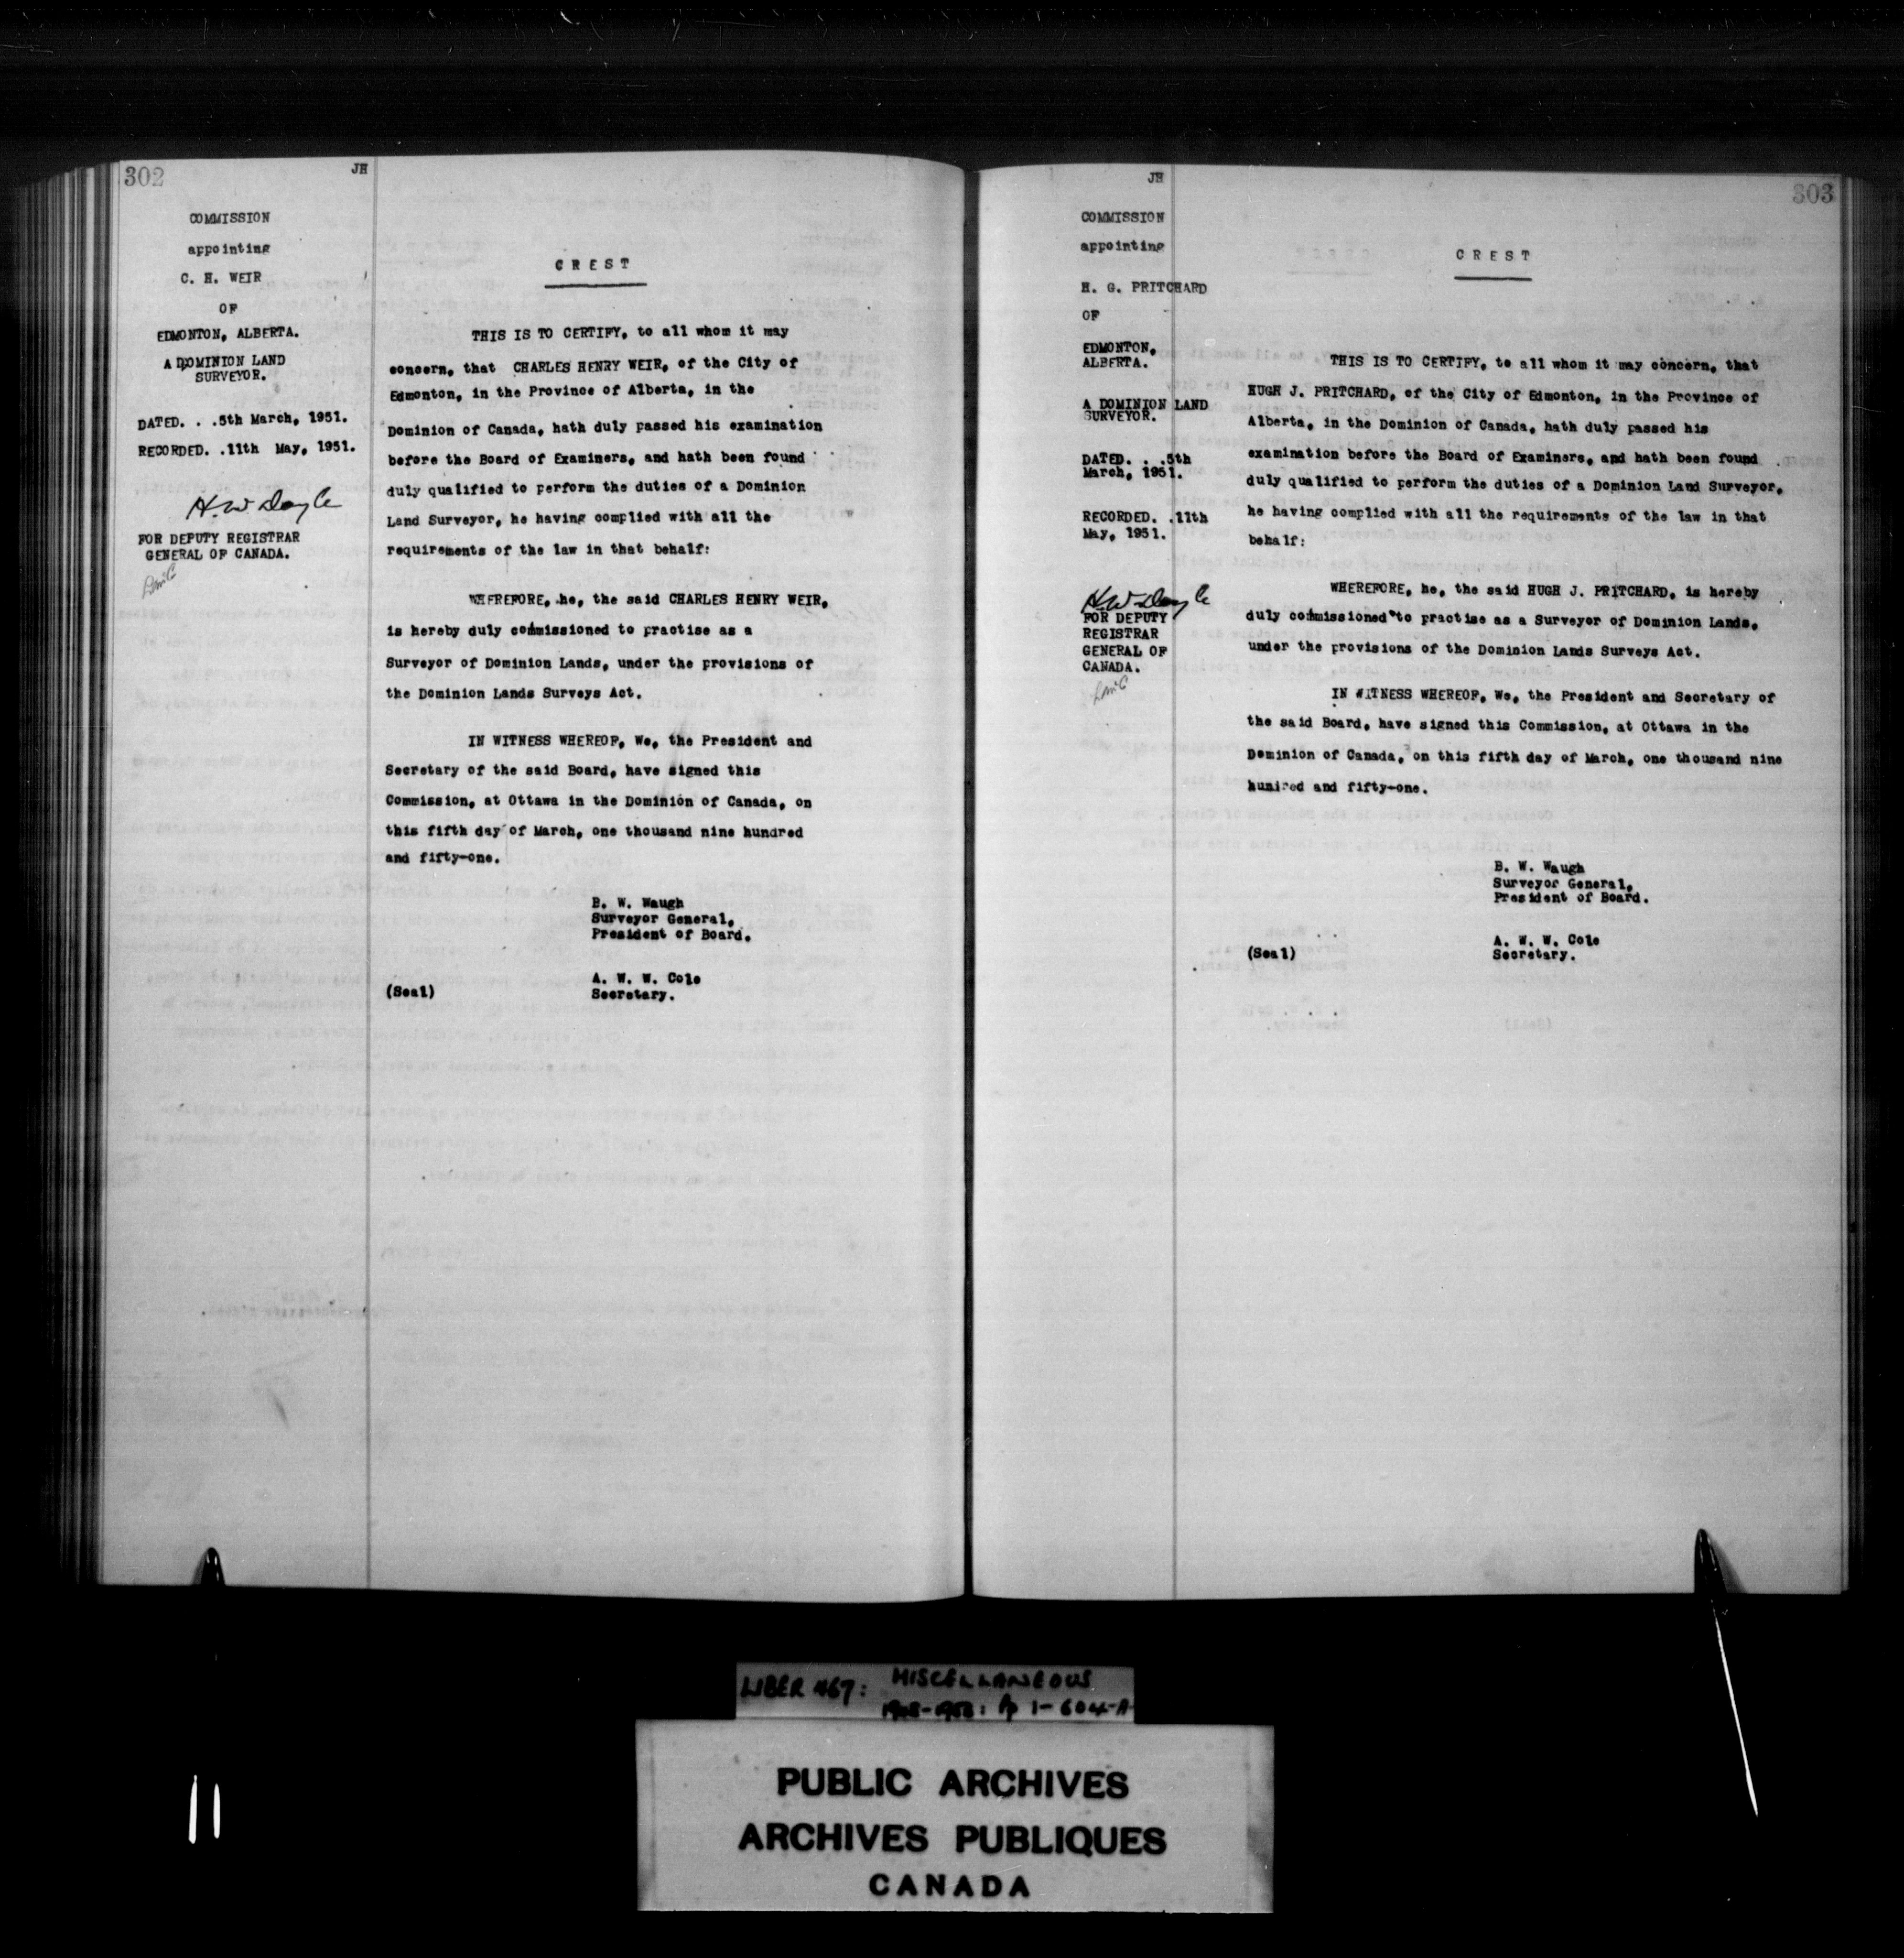 302
JH
COMMISSION
appointing
C. H. WEIR
OF
EDMONTON, ALBERTA.
A DOMINION LAND
SURVEYOR.
DATED. . .5th March, 1951.
RECORDED. .11th May, 1951.
H.W. Doyle
FOR DEPUTY REGISTRAR
GENERAL OF CANADA.
CREST
THIS IS TO CERTIFY, to all whom it may
concern, that CHARLES HENRY WEIR, of the City of
Edmonton, in the Province of Alberta, in the
Dominion of Canada, hath duly passed his examination
before the Board of Examiners, and hath been found
duly qualified to perform the duties of a Dominion
Land Surveyor, he having complied with all the
requirements of the law in that behalf:
WHEREFORE, he, the said CHARLES HENRY WEIR,
is hereby duly commissioned to practise as a
Surveyor of Dominion Lands, under the provisions of
the Dominion Lands Surveys Act.
IN WITNESS WHEREOF, We, the President and
Secretary of the said Board, have signed this
Commission, at Ottawa in the Dominion of Canada, on
this fifth day of March, one thousand nine hundred
and fifty-one.
B. W. Waugh
Surveyor General,
President of Board.
A. W. W. Cole
(Seal) Secretary.
JH
303
COMMISSION
appointing
H. G. PRITCHARD
OF
EDMONTON,
ALBERTA.
A DOMINION LAND
SURVEYOR.
DATED. . .5th
March, 1951.
RECORDED. .11th
May, 1951.
H.W. Doyle
FOR DEPUTY
REGISTRAR
GENERAL OF
CANADA.
CREST
THIS IS TO CERTIFY, to all whom it may concern, that
HUGH J. PRITCHARD, of the City of Edmonton, in the Province of
Alberta, in the Dominion of Canada, hath duly passed his
examination before the Board of Examiners, and hath been found
duly qualified to perform the duties of a Dominion Land Surveyor,
he having complied with all the requirements of the law in that
behalf:
WHEREFORE, he, the said HUGH J. PRITCHARD, is hereby
duly commissioned to practise as a Surveyor of Dominion Lands,
under the provisions of the Dominion Lands Surveys Act.
IN WITNESS WHEREOF, We, the President and Secretary of
the said Board, have signed this Commission, at Ottawa in the
Dominion of Canada, on this fifth day of March, one thousand nine
hundred and fifty-one.
B. W. Waugh
Surveyor General,
President of Board.
A. W. W. Cole
(Seal) Secretary.
LIBER 467: MISCELLANEOUS
pp 1-604-A
PUBLIC ARCHIVES
ARCHIVES PUBLIQUES
CANADA